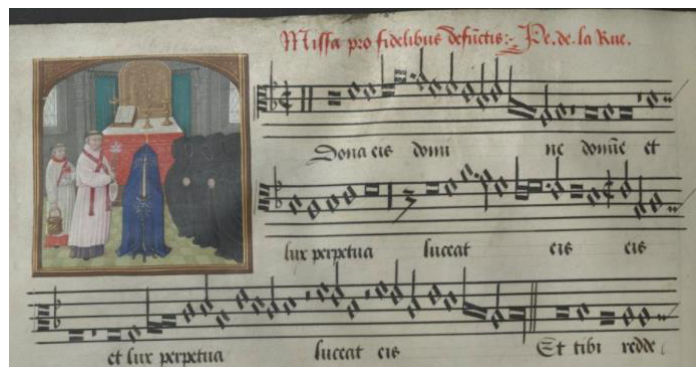 Missa pro fidelibus defu̅ctis:- Pe. de. la Rue.
Dona eis domi ne domi̅e et
lux perpetua luceat eis eis
et lux perpetua luceat eis Et tibi redde